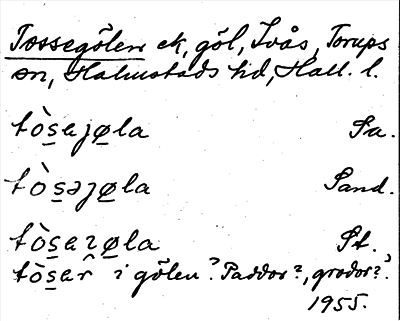 Tossegölen ek, göl, Ivås, Torups
sn, Halmstads hd, Hall. l.
tòs̲aȷø̲la Sa.
tòs̲əȷø̲la Sand.
tòs̲aɿø̲la St.
tòs̲ar̂ i gölen? Paddor?, grodor?.
1955.